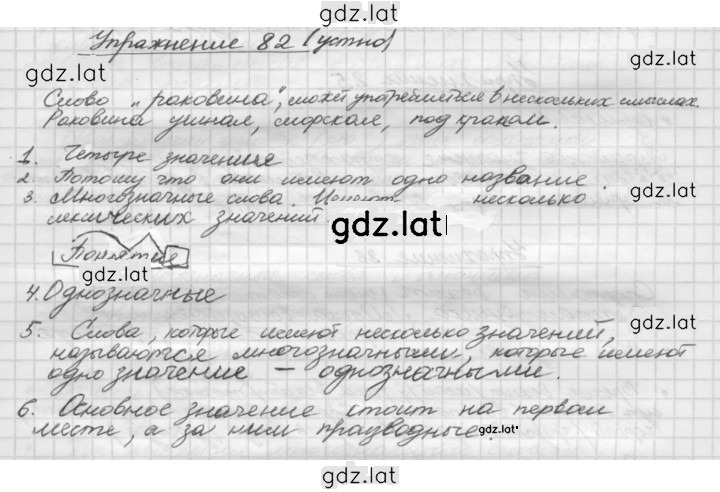 gdz.lat
Упражнение 82 (устно)
gdz.lat
gdz.lat
Слово „раковина", может употребляется в нескольких смыслах.
Раковина ушная, морская, под краном.
1. Четыре значение
2. Потому что они имеют одно название.
3. Многозначные слова. Имеют несколько
gdz.lat
лексических значений.
gdz.lat
Понятие
gdz.lat
4. Однозначные
5. Слова, которые имеют несколько значений,
gdz.lat
называются многозначными, которые имеют
одно значение – однозначными.
6. Основное значение стоит на первом
месте, а за ним празводные.
gdz.lat
gdz.lat